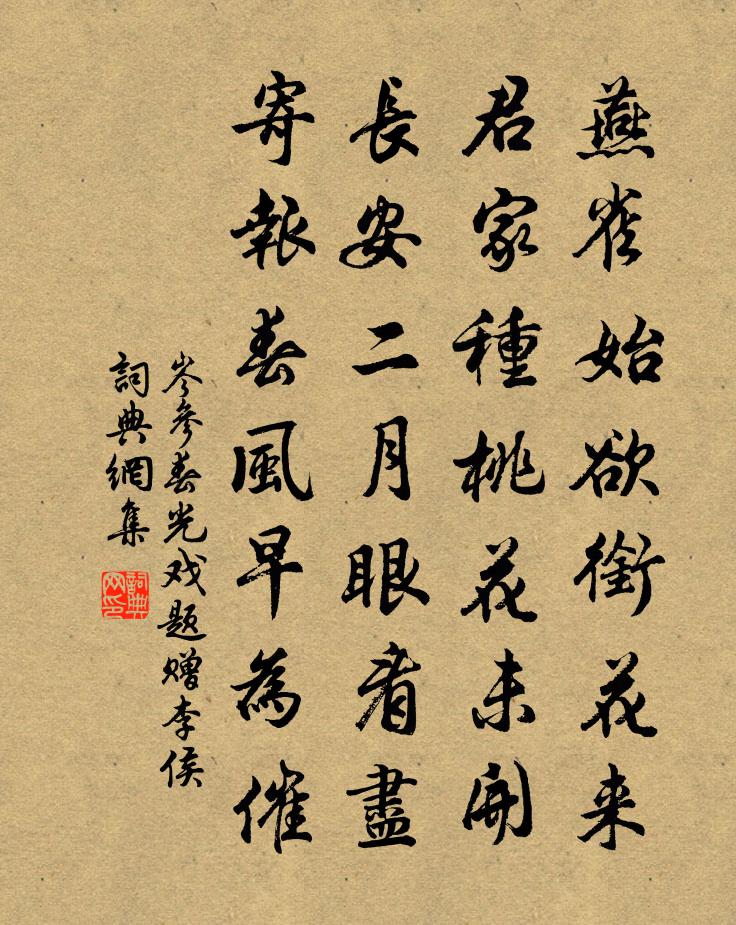 燕雀始欲銜花来
君家種桃花未開
長安二月眼看盡
寄報春風早為催
岑參春光戏题赠李侯
詞典網集
詞典网印